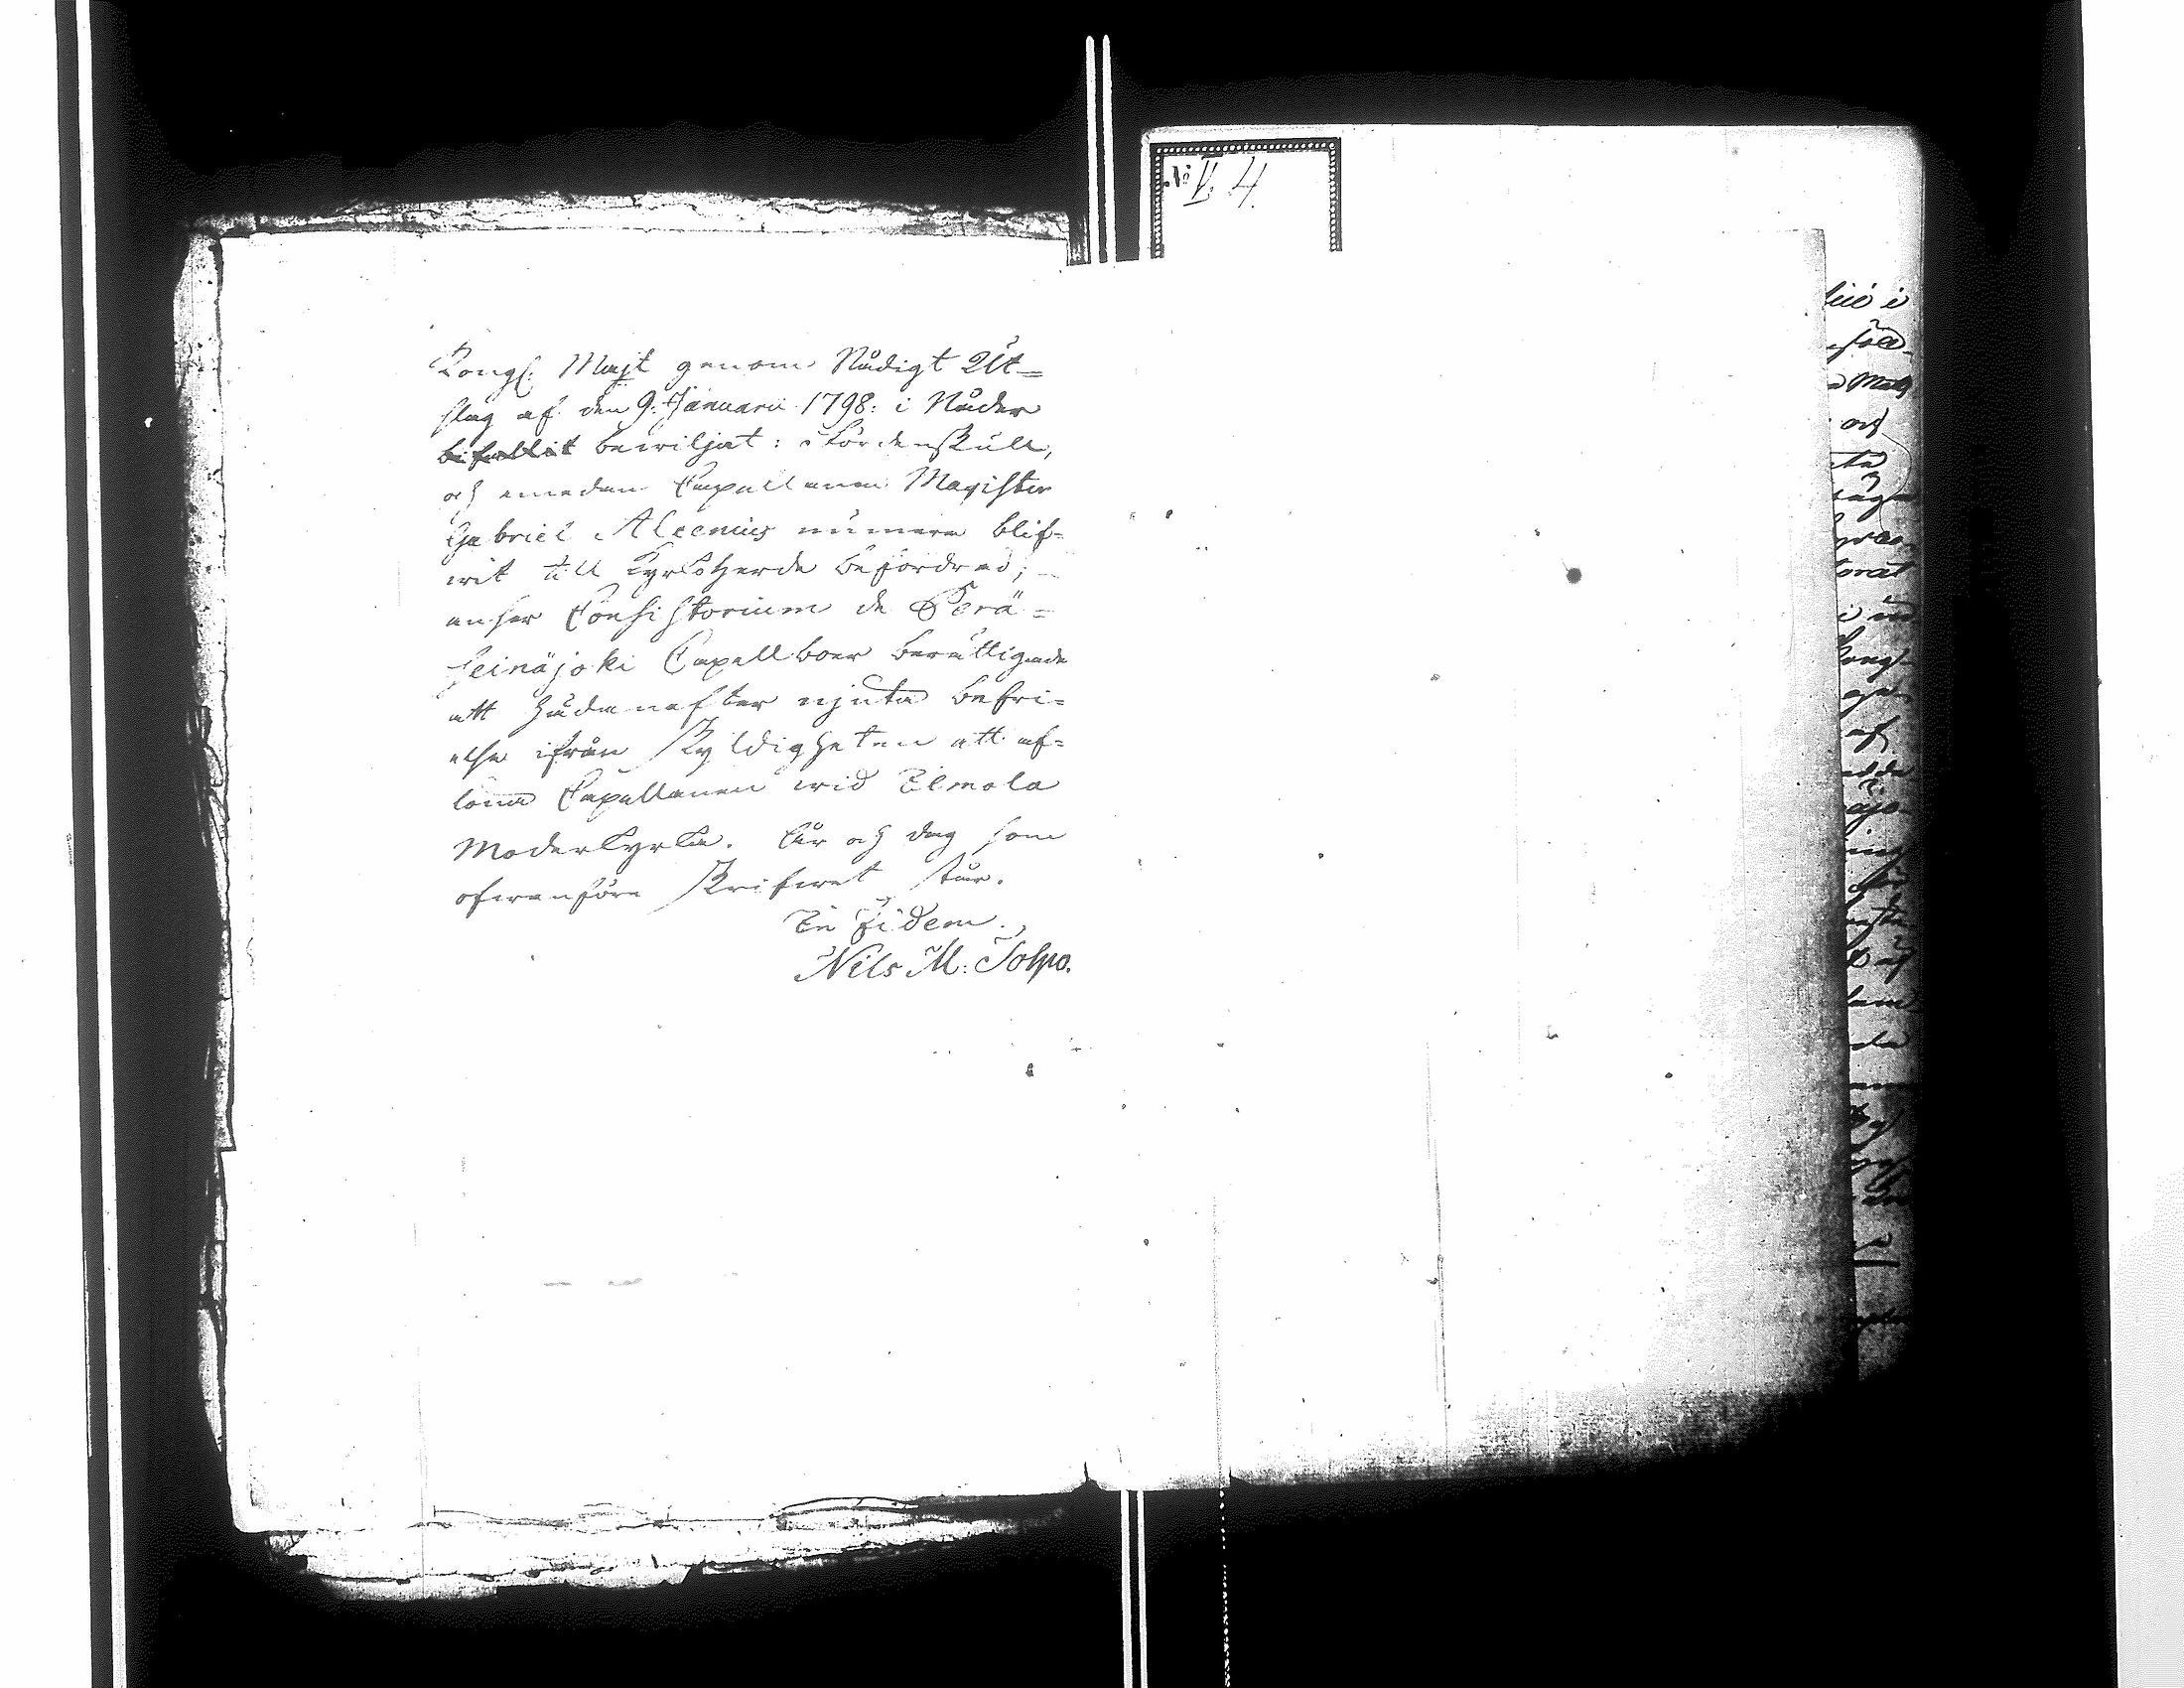 Kongl. Majt genom Nådigt Ut=
slag af den 9: Januarii 1798: i Nåder
befallit bewiljat: Fördenskull,
och emedan Capellanen Magister
Gabriel Alcenius numera blif=
wit till Kyrkoherde befordrad;
anser Consistorium de Perä=
seinäjoki Capellboer berättigade
att hädanefter njuta befri=
else ifrån skyldigheten att af=
löna Capellanen wid Ilmola
Moderkyrka. År och dag som
ofwanföre skrifwet står.
In Fidem.
Nils M: Tolpo.
№ V: 4.